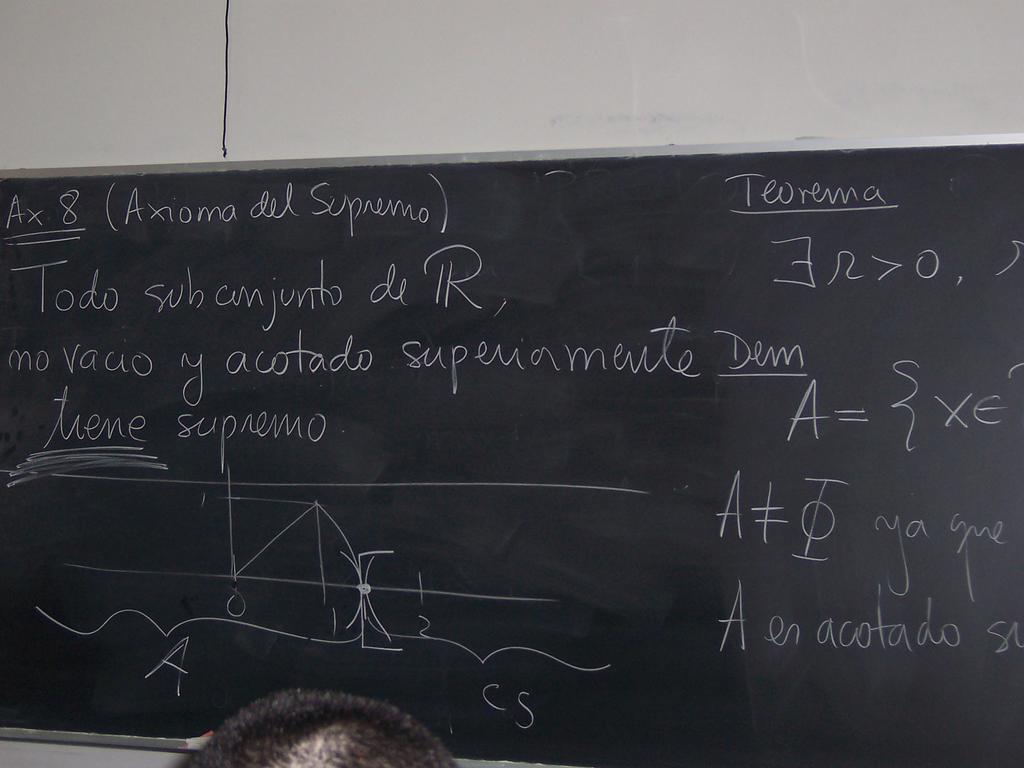 Ax 8 (Axioma del Supremo)
Todo subconjunto de ℝ,
no vacio y acotado superiormente
tiene supremo
1
0
1
2
A
CS
Teorema
∃ r > 0,
Dem
A = { x ∈
A ≠ Φ ya que
A es acotado su